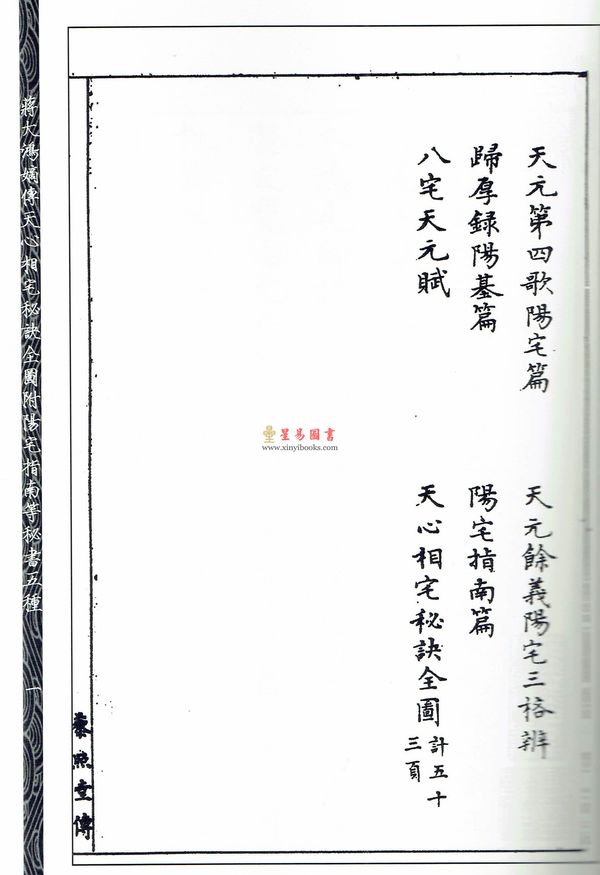 天元第四歌陽宅篇
天元餘義陽宅三格辨
歸厚録陽基篇
陽宅指南篇
八宅天元賦
天心相宅秘訣全圖 計五十三頁
星易圖書
www.xinyibooks.com
堂傳
蔣大鴻嫡傳天心相宅秘訣全圖附陽宅指南等秘書五種
一